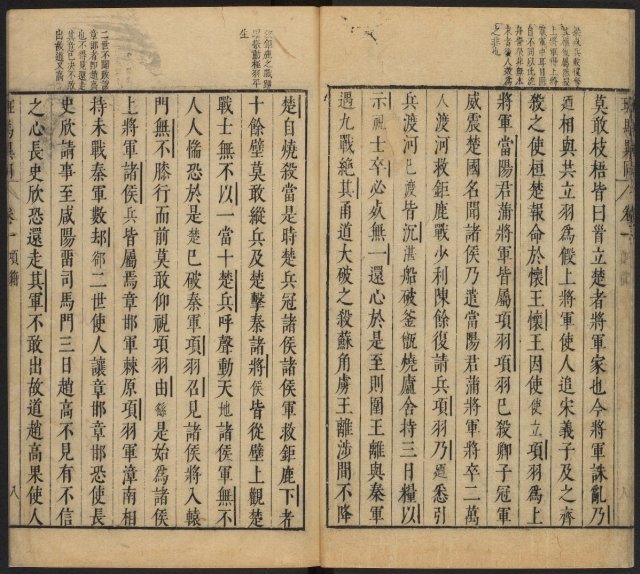 莫敢枝梧皆曰首立楚者將軍家也今將軍誅亂乃
相與共立羽爲假上將軍使人追宋義子及之齊
殺之使桓楚報命於懷王懷王因使使立項羽爲上
將軍當陽君蒲將軍皆屬項羽項羽已殺卿子冠軍
威震楚國名聞諸侯乃遣當陽君蒲將軍將卒二萬
人渡河救鉅鹿戰少利陳餘復請兵項羽乃悉引
兵渡河已渡皆沉湛船破釜甑燒廬舍持三日糧以
示士卒必死無一還心於是至則圍王離與秦軍
遇九戰絶其甬道大破之殺蘇角虜王離涉閒不降
楚自燒殺當是時楚兵冠諸侯諸侯軍救鉅鹿下者
十餘壁莫敢縱兵及楚擊秦諸將侯皆從壁上觀楚
戰士無不以一當十楚兵呼聲動天地諸侯軍無不
人人惴恐於是楚已破秦軍項羽召見諸侯將入轅
門無不膝行而前莫敢仰視項羽由是始爲諸侯
上將軍諸侯兵皆屬焉章邯軍棘原項羽軍漳南相
持未戰秦軍數却卻二世使人讓章邯章邯恐使長
史欣請事至咸陽留司馬門三日趙高不見有不信
之心長史欣恐還走其軍不敢出故道趙高果使人
卷一
項籍
八